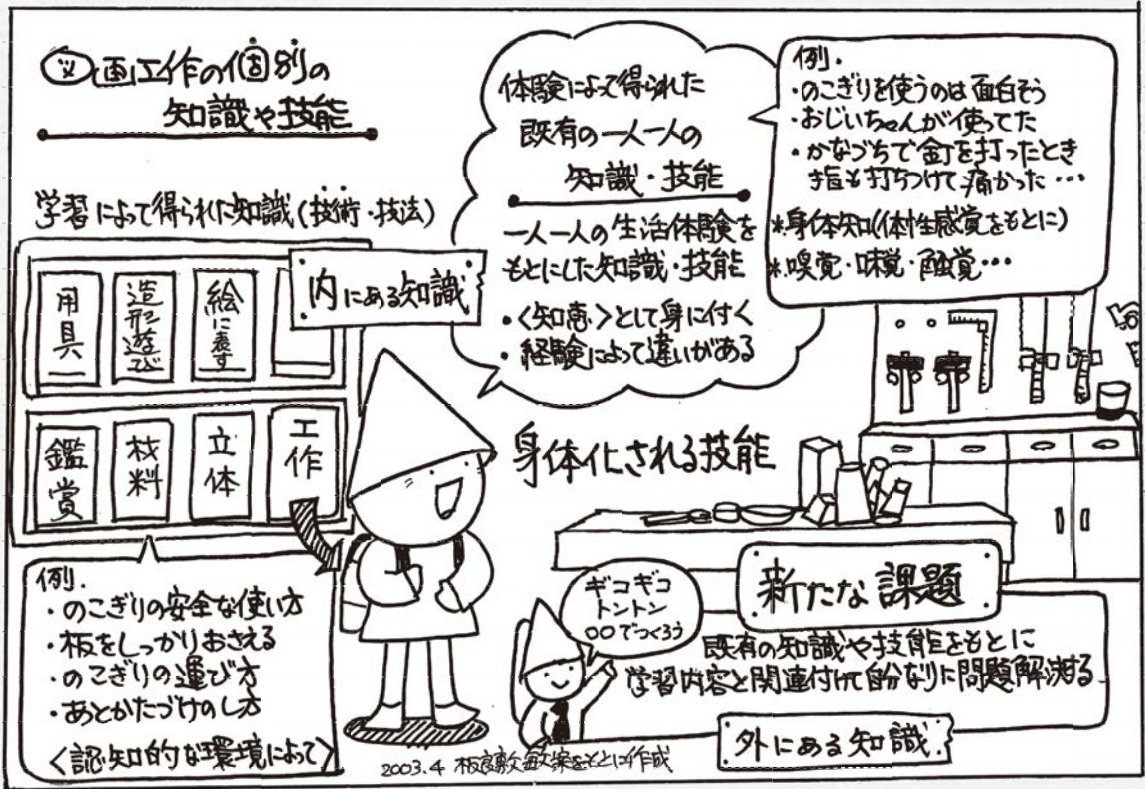 図画工作の個別の
知識や技能
学習によって得られた知識(技術・技法)
用具
造形遊び
絵に表す
鑑賞
材料
立体
工作
内にある知識
例.
・のこぎりの安全な使い方
・板をしっかりおさえる
・のこぎりの運び方
・あとかたづけのし方
〈認知的な環境によって〉
体験によって得られた
既有の一人一人の
知識・技能
一人一人の生活体験を
もとにした知識・技能
・〈知恵〉として身に付く
・経験によって違いがある
例.
・のこぎりを使うのは面白そう
・おじいちゃんが使ってた
・かなづちで釘を打ったとき
指も打ちつけて痛かった…
*身体知(体性感覚をもとに)
*嗅覚・味覚・触覚…
身体化される技能
ギコギコ
トントン
○○でつくろう
新たな課題
既有の知識や技能をもとに
学習内容と関連付けて自分なりに問題解決する
外にある知識.
2003.4 板良敷敏案をもとに作成